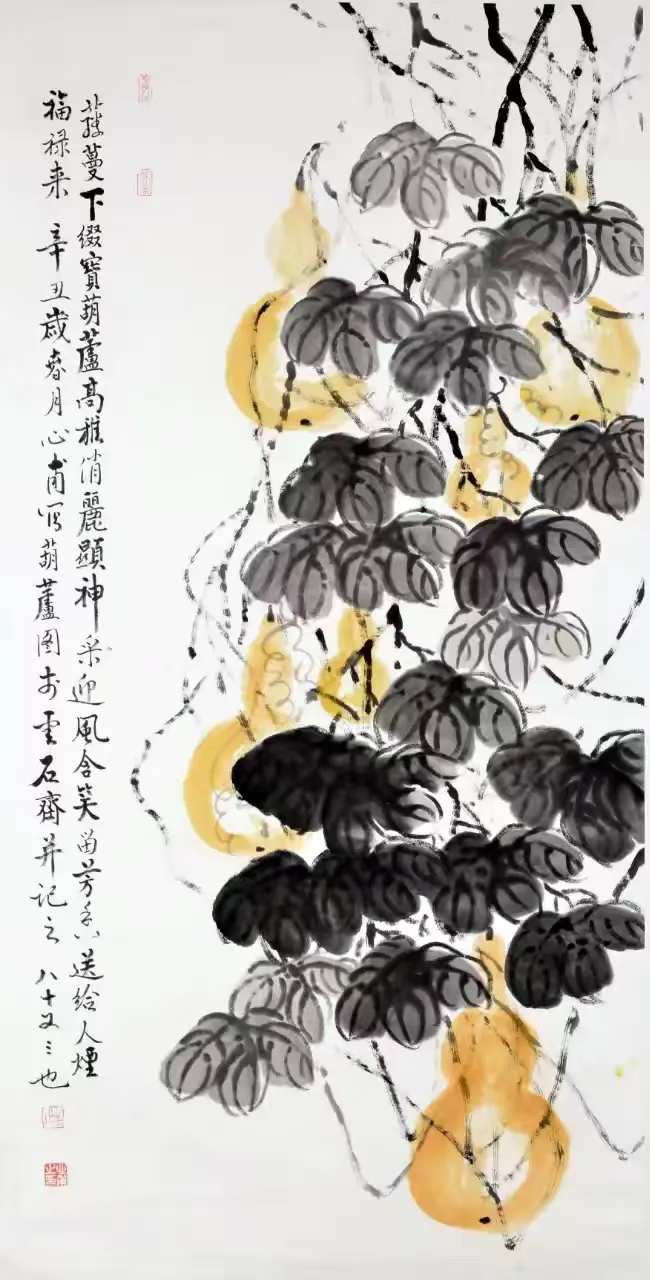 藤蔓下缀寳葫蘆高雅俏麗顯神采迎風含笑留芳香送給人煙
福禄来 辛丑歲春月心甫写葫蘆图于雲石齋并记之 八十又三也